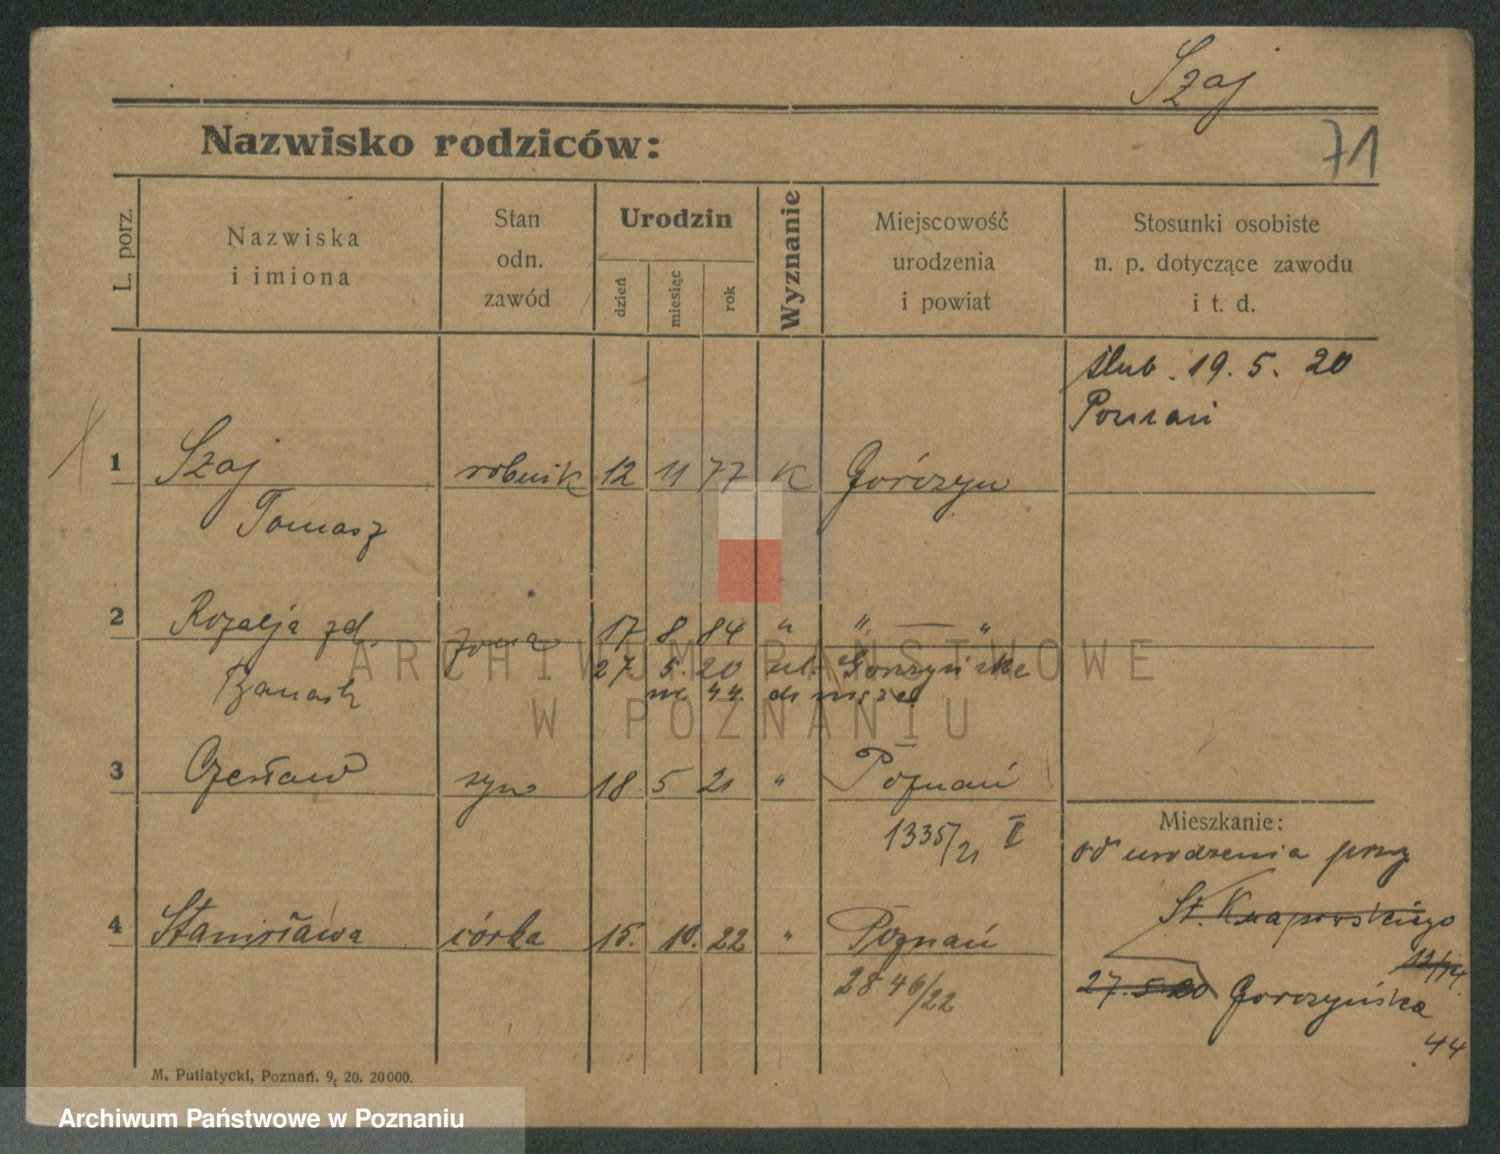 Szaj
Nazwisko rodziców:
71
L. porz.
Nazwiska
i imiona
Stan
odn.
zawód
Urodzin
dzień
miesiąc
rok
Wyznanie
Miejscowość
urodzenia
i powiat
Stosunki osobiste
n. p. dotyczące zawodu
i t. d.
ślub. 19. 5. 20
Poznań
1 Szaj robnik 12 11 77 K Górczyn
Tomasz
2 Rozalja zd. żona 17 8 84 " " — "
27. 5. 20 ul. Gorczyńska
nr 44.
3 Czesław syn 18 5 21 " Poznań
1335/21 II
Mieszkanie:
od urodzenia przy
4 Stanisława córka 15. 10. 22 " Poznań
2846/22
St. Knapowskiego
12/14
27. 5. 20 Gorczyńska
44
M. Putiatycki, Poznań. 9, 20. 20000.
ARCHIWUM PAŃSTWOWE
W POZNANIU
Archiwum Państwowe w Poznaniu